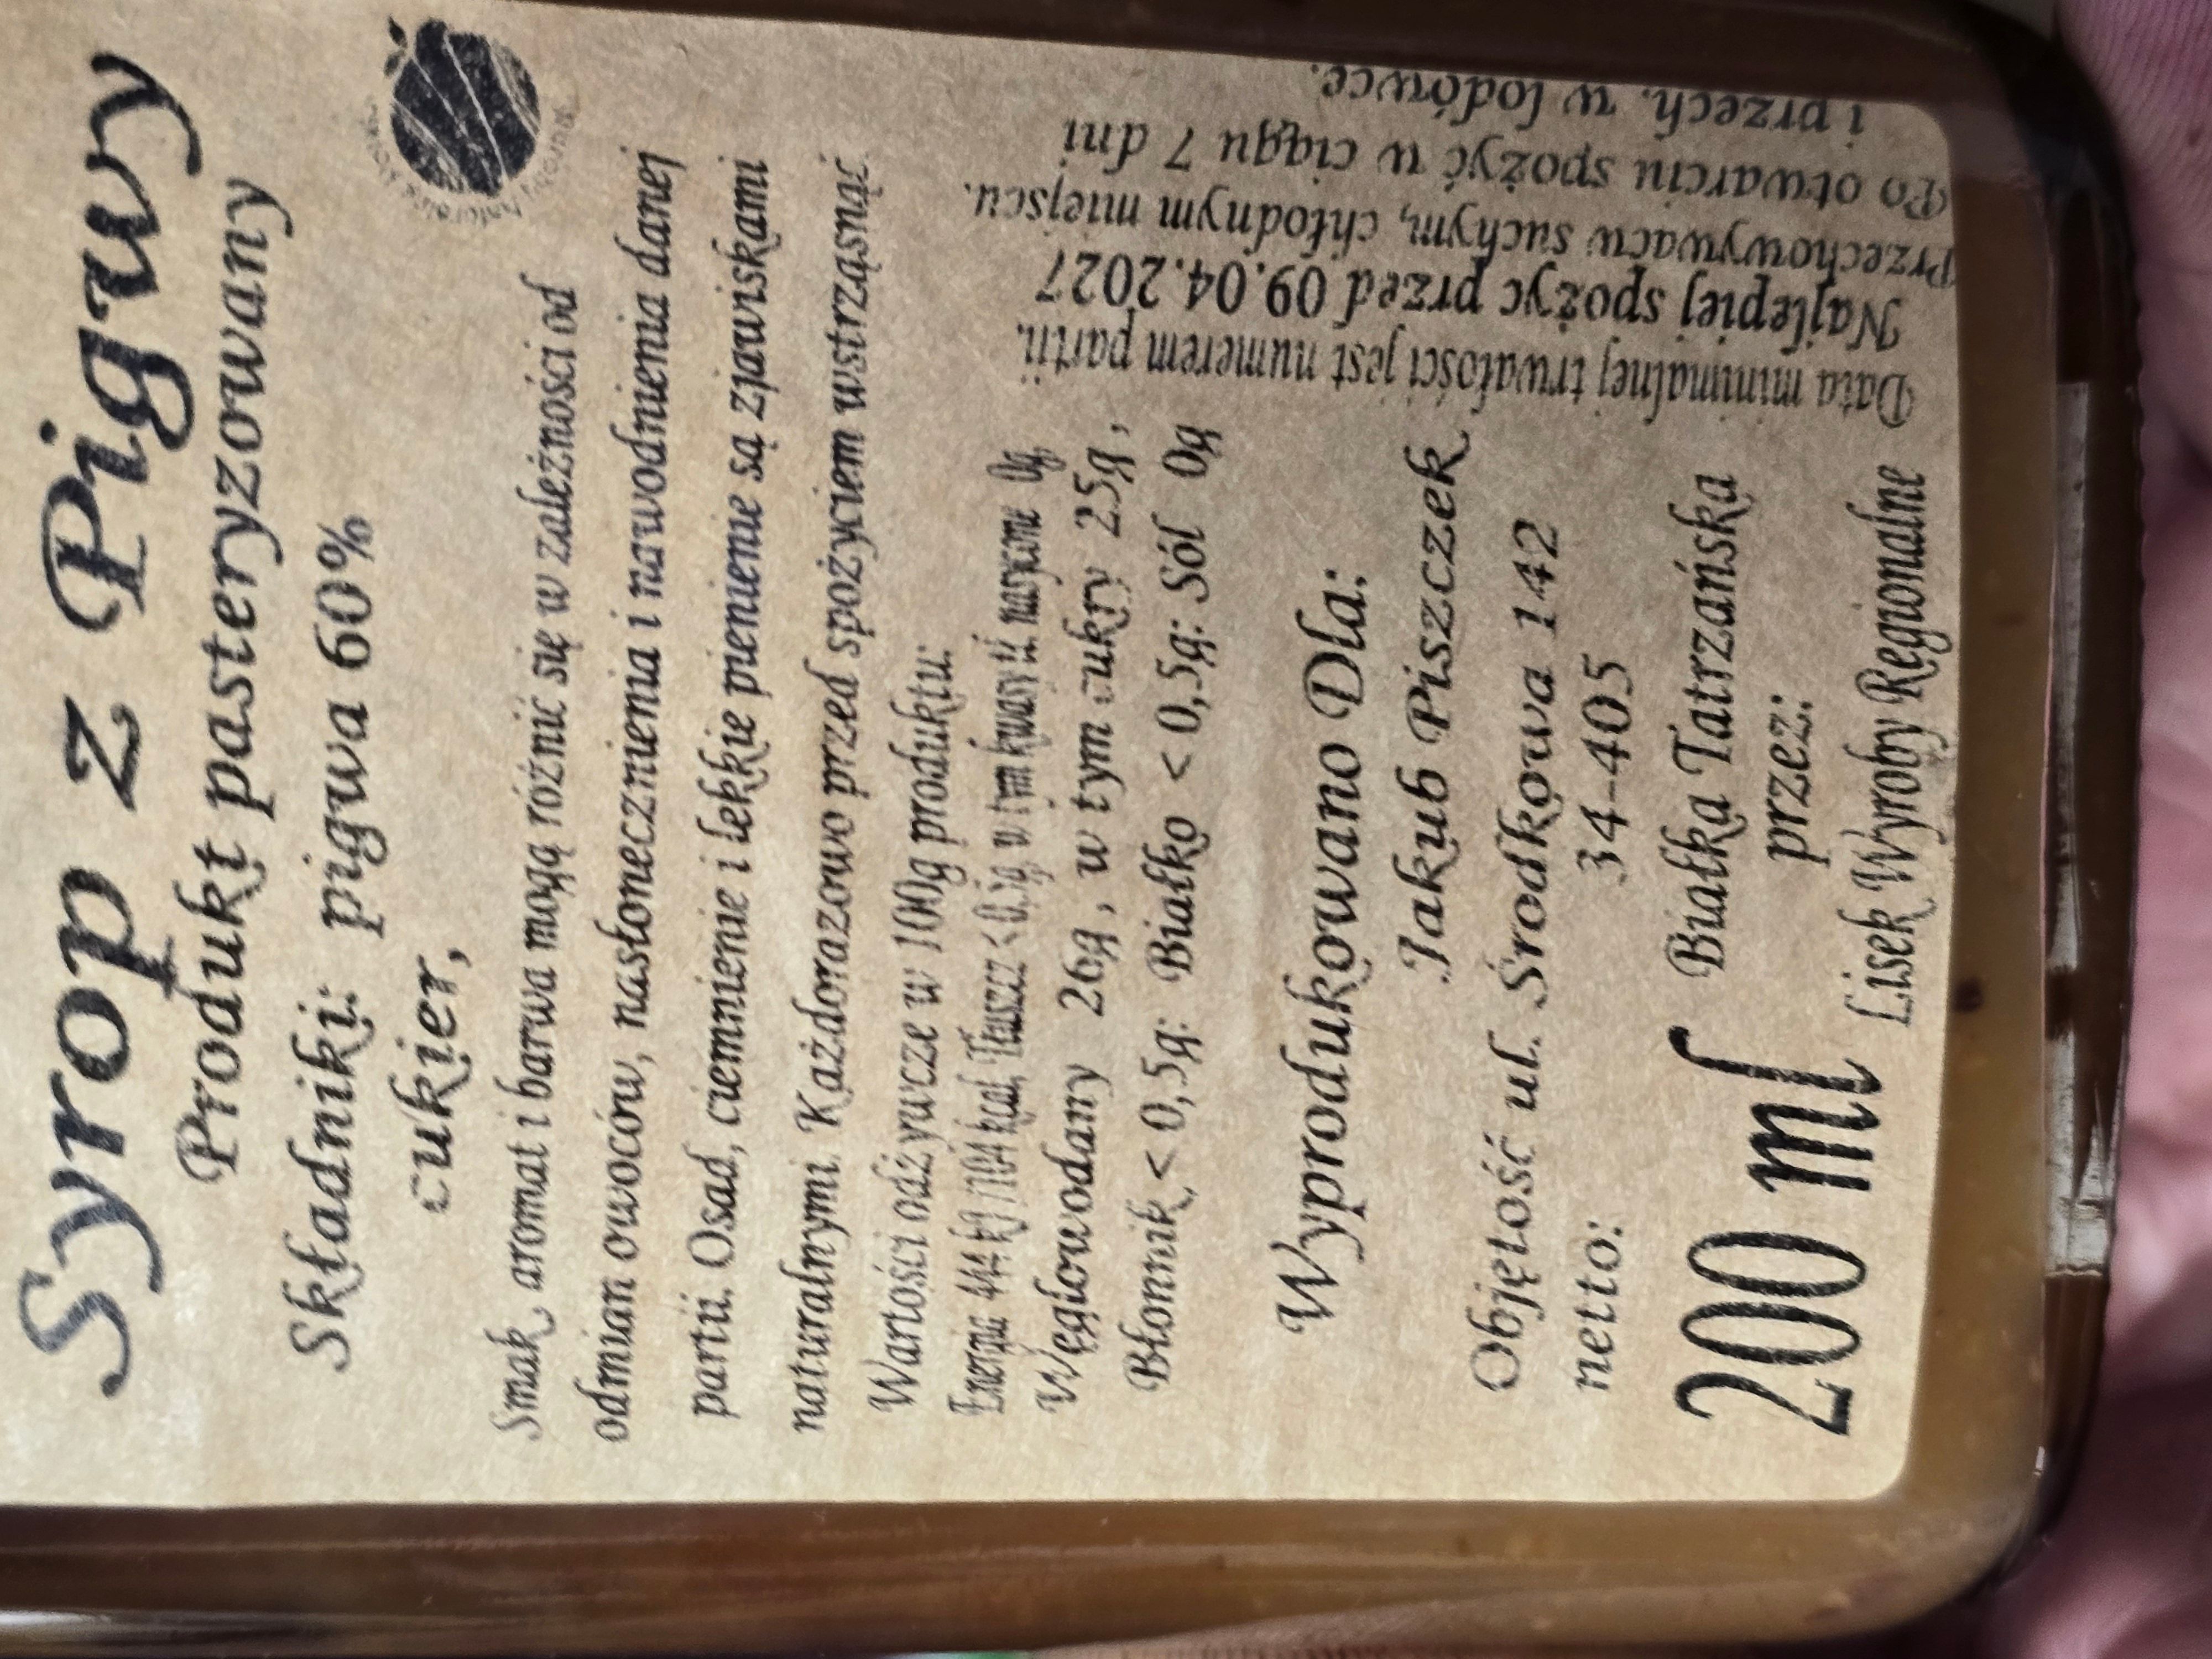 Syrop z Pigwy
Produkt pasteryzowany
Składniki: pigwa 60%
cukier,
Smak, aromat i barwa mogą różnić się w zależności od
odmian owoców, nasłonecznienia i nawodnienia danej
partii. Osad, ciemnienie i lekkie pienienie są zjawiskami
naturalnymi. Każdorazowo przed spożyciem wstrząsnąć
Wartości odżywcze w 100g produktu:
Energia 444 kJ /104 kcal, Tłuszcz < 0,5g w tym kwasy tł. nasycone 0g,
Węglowodany 26g, w tym cukry 25g,
Błonnik < 0,5g: Białko < 0,5g: Sól 0g
Wyprodukowano Dla:
Jakub Piszczek
ul. Środkowa 142
34-405
Białka Tatrzańska
przez:
Lisek Wyroby Regionalne
Objętość
netto:
200 ml
Data minimalnej trwałości jest numerem partii.
Najlepiej spożyc przed 09.04.2027
Przechowywaćw suchym, chłodnym miejscu.
Po otwarciu spożyć w ciągu 7 dni
i przech. w lodówce.